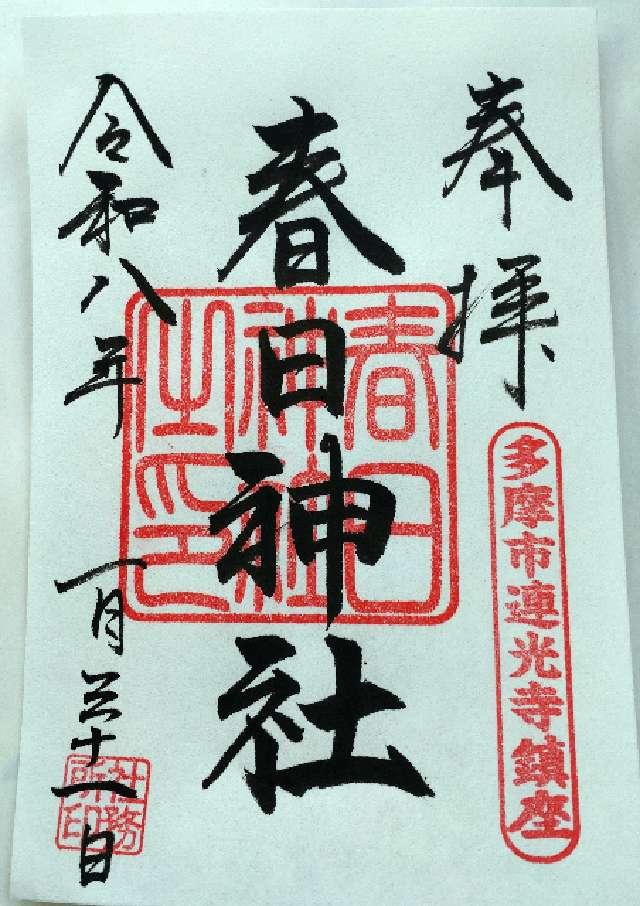 奉拝
多摩市連光寺鎮座
春日神社
春日神社之印
令和八年 一月三十一日
社務所印